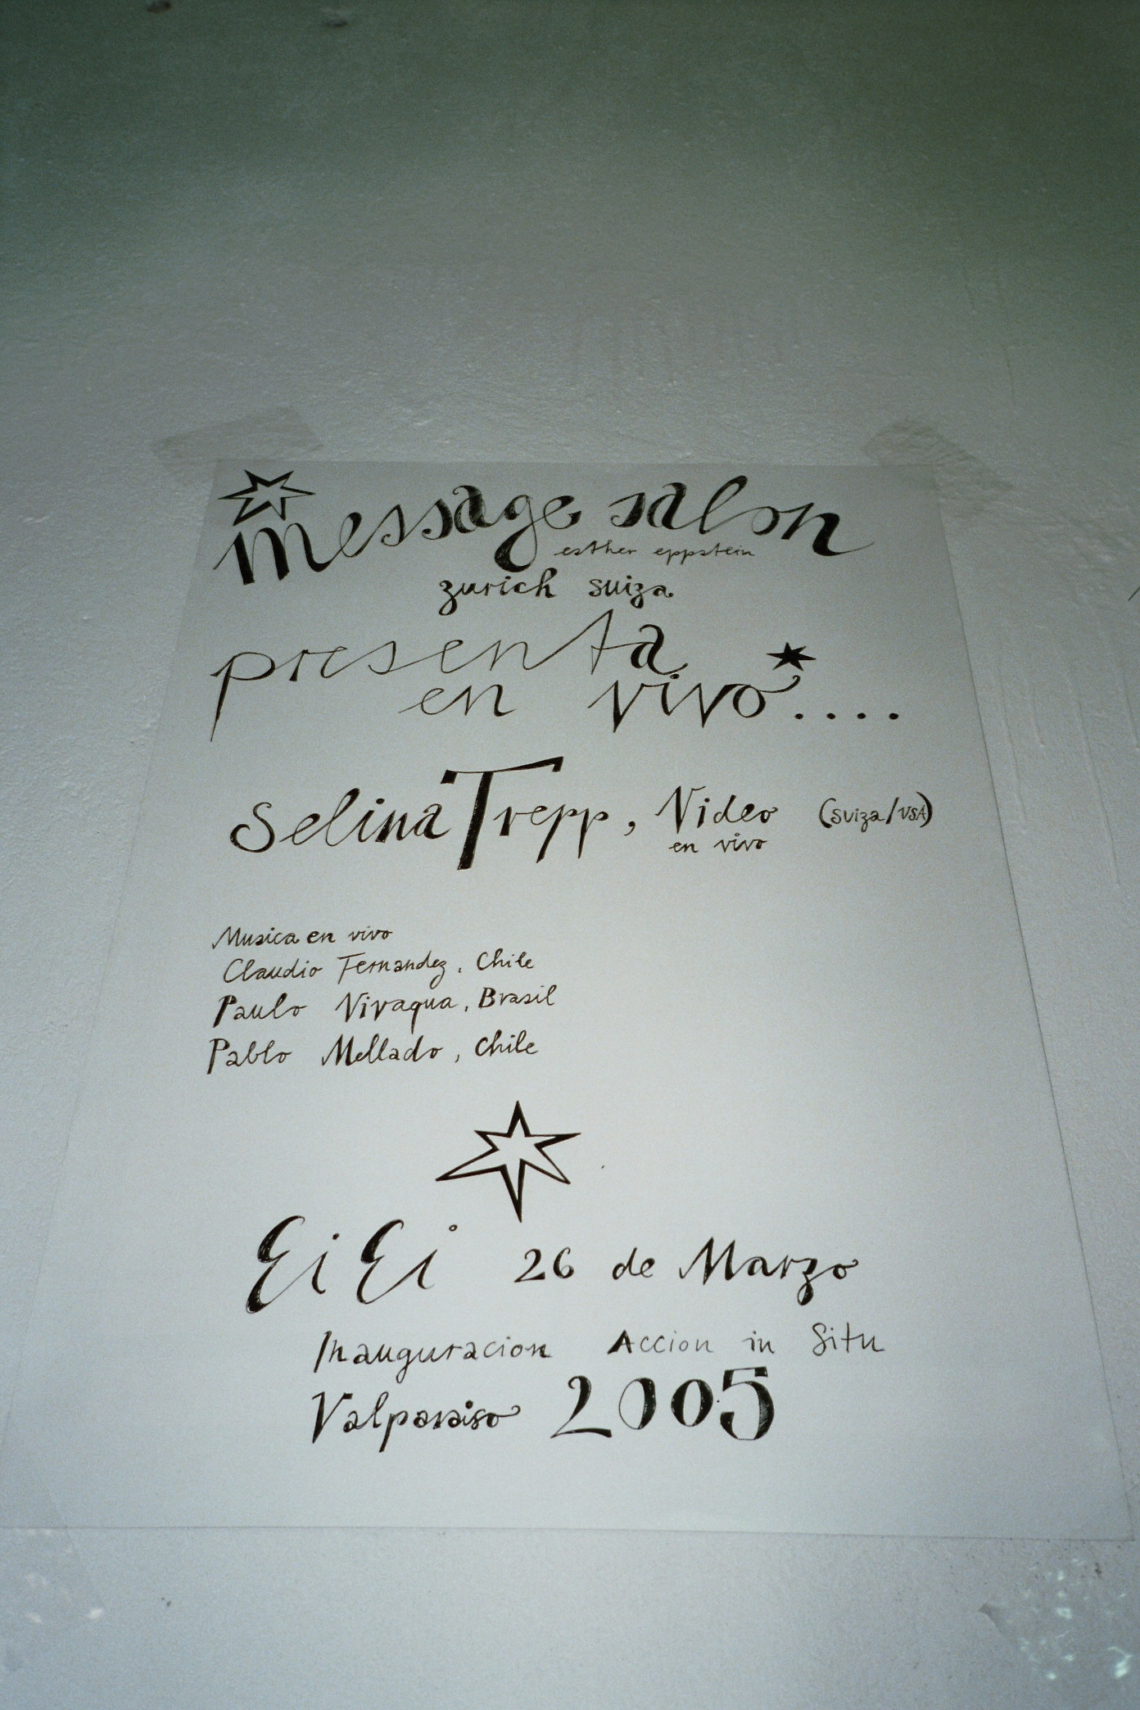 message salon
esther eppstein
zurich suiza
presenta
en vivo....
Selina Trepp, Video (Suiza/USA)
en vivo
Musica en vivo
Claudio Fernandez, Chile
Paulo Vivaqua, Brasil
Pablo Mellado, Chile
Ei Ei 26 de Marzo
Inauguracion Accion in Situ
Valparaiso 2005